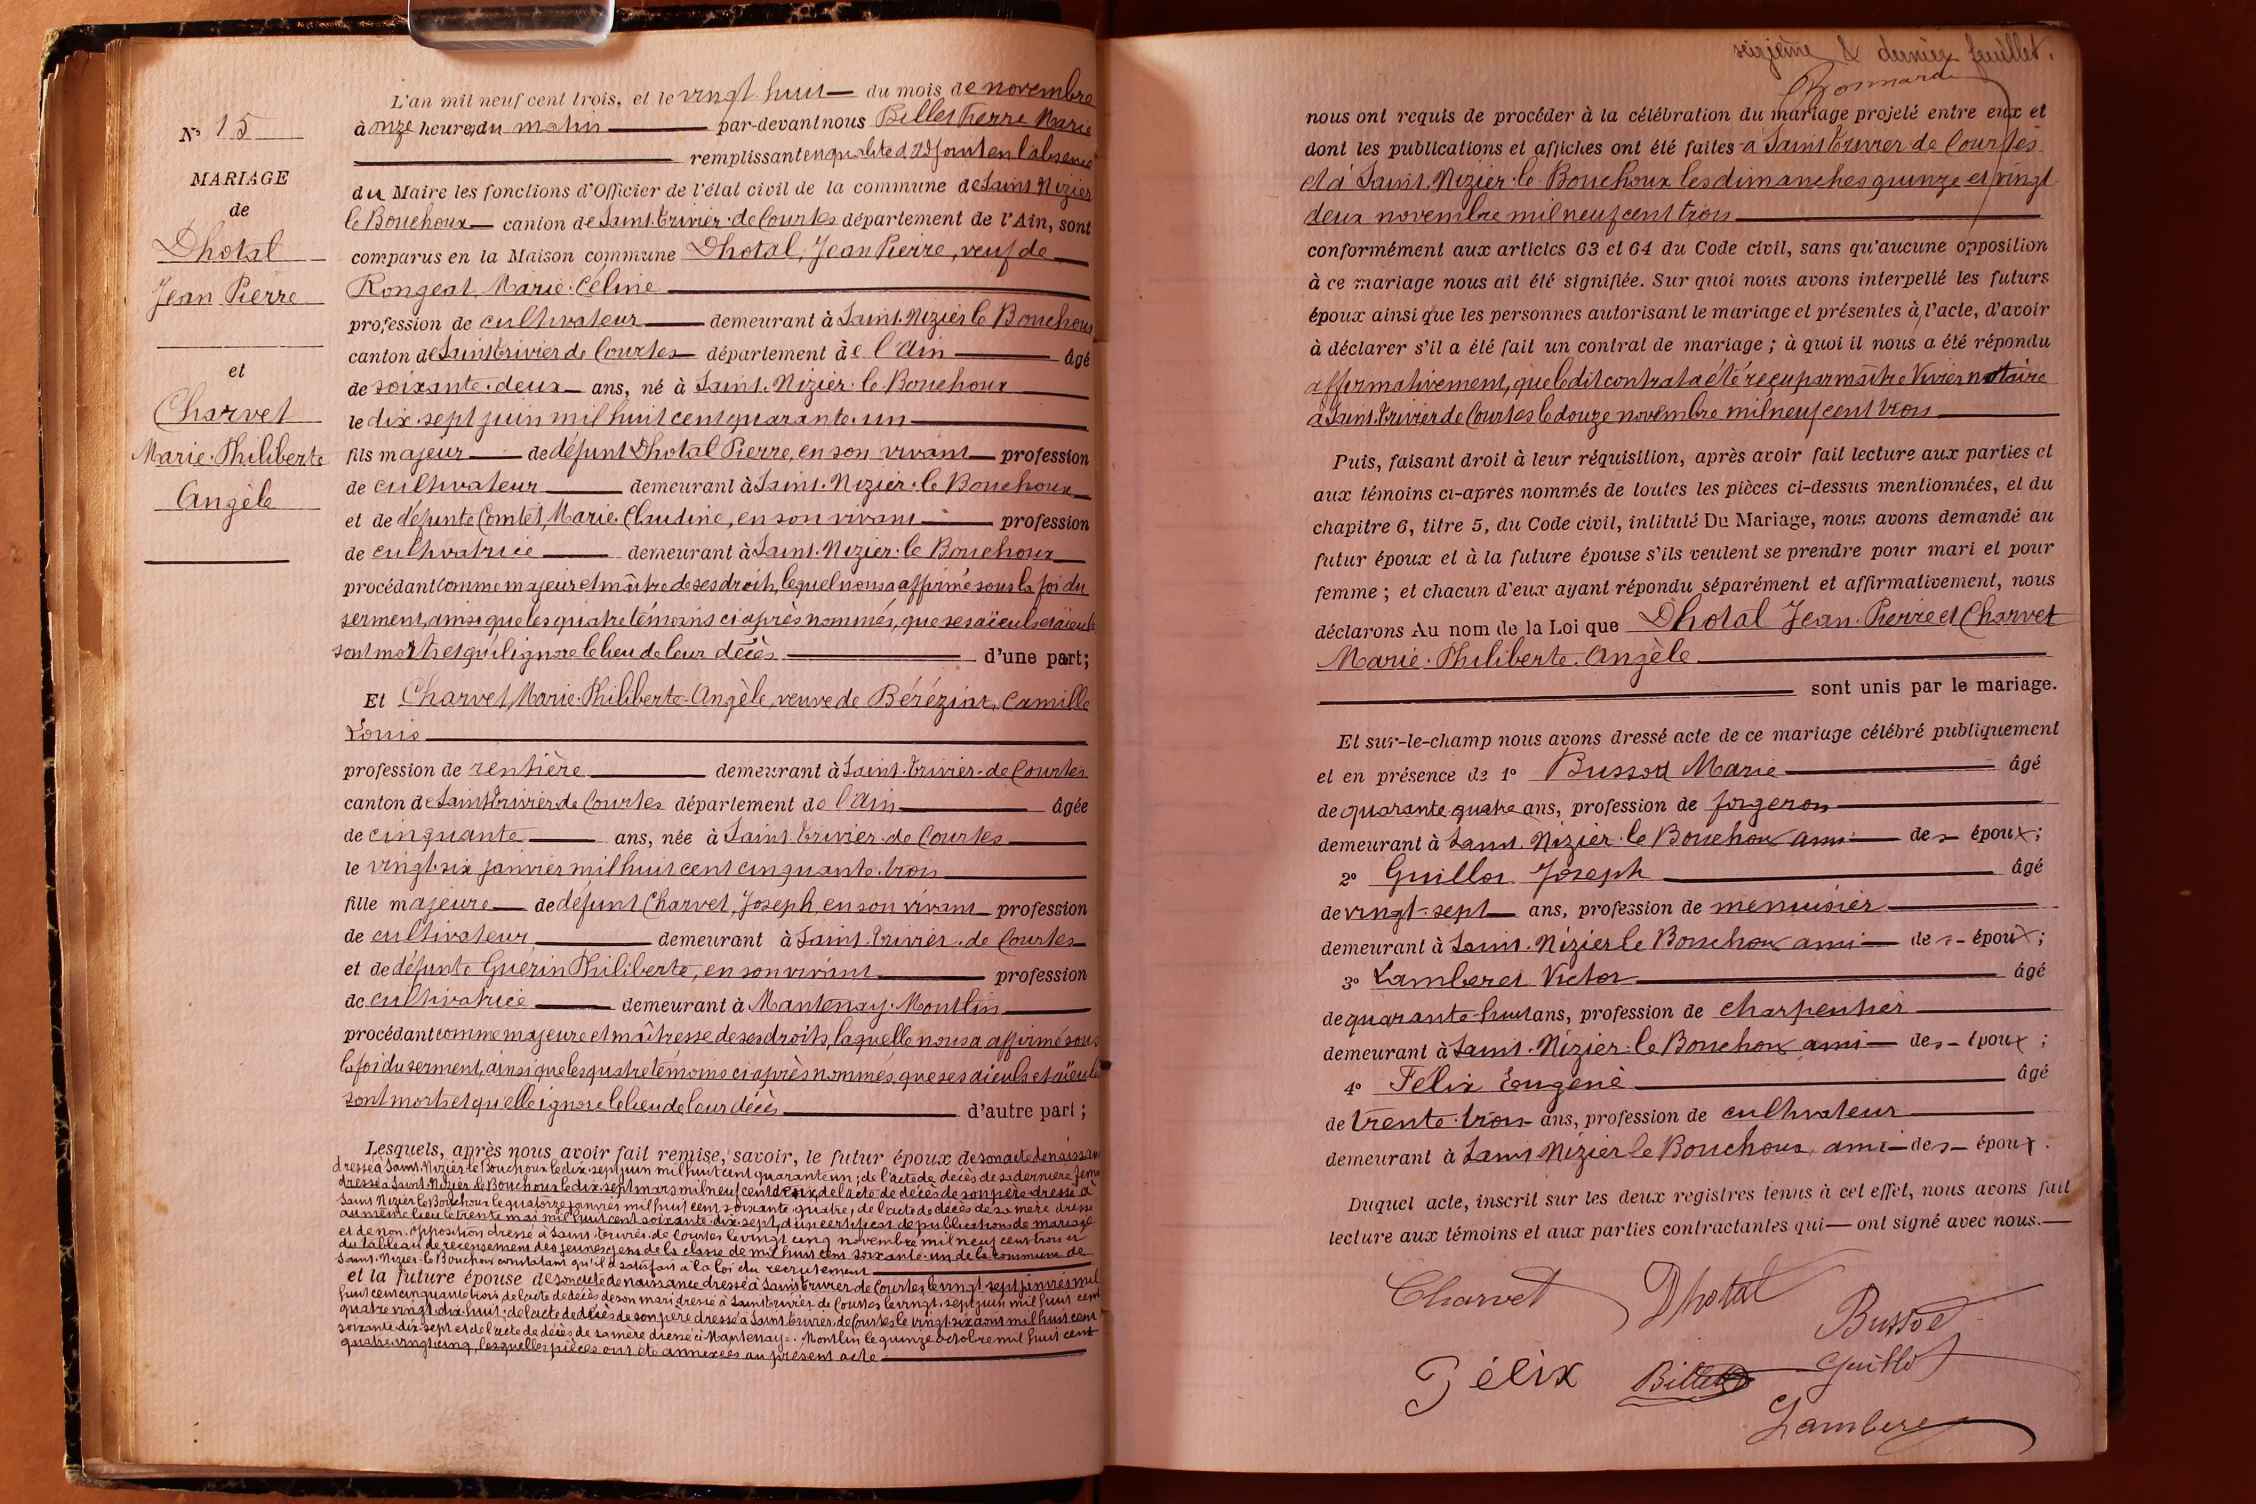 N° 15
MARIAGE
de
Dhotal
Jean Pierre
et
Charvet
Marie-Philiberte
Angèle
L'an mil neuf cent trois, et le vingt-huit du mois de novembre
à onze heures du matin par-devant nous Billet Pierre Marie
remplissant en qualité d'adjoint en l'absence
du Maire les fonctions d'Officier de l'état civil de la commune de Saint-Nizier
le Bouchoux canton de Saint-Trivier-de-Courtes département de l'Ain, sont
comparus en la Maison commune Dhotal, Jean Pierre, veuf de
Rongeat, Marie-Céline
profession de cultivateur demeurant à Saint-Nizier le Bouchoux
canton de Saint-Trivier de Courtes département de l'Ain âgé
de soixante-deux ans, né à Saint-Nizier-le-Bouchoux
le dix-sept juin mil huit cent quarante-un
fils majeur de défunt Dhotal Pierre, en son vivant profession
de cultivateur demeurant à Saint-Nizier-le-Bouchoux
et de défunte Comtet, Marie-Claudine, en son vivant profession
de cultivatrice demeurant à Saint-Nizier-le-Bouchoux
procédant comme majeur et maître de ses droits, lequel nous a affirmé sous la foi du
serment, ainsi que les quatre témoins ci-après nommés, que ses aïeuls et aïeules
sont morts et qu'il ignore le lieu de leur décès d'une part;
Et Charvet, Marie-Philiberte-Angèle, veuve de Béréziat, Camille
Louis
profession de rentière demeurant à Saint-Trivier-de-Courtes
canton de Saint-Trivier de Courtes département de l'Ain âgée
de cinquante ans, née à Saint-Trivier-de-Courtes
le vingt-six janvier mil huit cent cinquante-trois
fille majeure de défunt Charvet, Joseph, en son vivant profession
de cultivateur demeurant à Saint-Trivier-de-Courtes
et de défunte Guérin Philiberte, en son vivant profession
de cultivatrice demeurant à Mantenay-Montlin
procédant comme majeure et maîtresse de ses droits, laquelle nous a affirmé sous
la foi du serment, ainsi que les quatre témoins ci-après nommés, que ses aïeuls et aïeules
sont morts et qu'elle ignore le lieu de leur décès d'autre part;
Lesquels, après nous avoir fait remise, savoir, le futur époux de son acte de naissance
dressé à Saint-Nizier le Bouchoux le dix-sept juin mil huit cent quarante un; de l'acte de décès de sa dernière femme
dressé à Saint-Nizier-le-Bouchoux le dix-sept mars mil neuf cent deux, de l'acte de décès de son père dressé à
Saint Nizier le Bouchoux le quatorze janvier mil huit cent soixante-quatre, de l'acte de décès de sa mère dressé
au même lieu le trente mai mil huit cent soixante-dix-sept, d'un certificat de publications de mariage
et de non-opposition dressé à Saint-Trivier-de-Courtes le vingt cinq novembre mil neuf cent trois et
du tableau de recensement des jeunes gens de la classe de mil huit cent soixante-un de la commune de
Saint-Nizier-le-Bouchoux constatant qu'il a satisfait à la loi du recrutement
et la future épouse de son acte de naissance dressé à Saint-Trivier de Courtes le vingt-sept janvier mil
huit cent cinquante trois de l'acte de décès de son mari dressé à Saint-Trivier de Courtes le vingt-sept juin mil huit cent
quatre vingt-dix-huit; de l'acte de décès de son père dressé à Saint-Trivier-de-Courtes le vingt-six août mil huit cent
soixante-dix-sept et de l'acte de décès de sa mère dressé à Mantenay-Montlin le quinze octobre mil huit cent
quatre-vingt-cinq, lesquelles pièces ont été annexées au présent acte
seizième & dernier feuillet.
nous ont requis de procéder à la célébration du mariage projeté entre eux et
dont les publications et affiches ont été faites à Saint-Trivier-de-Courtes
et à Saint-Nizier-le-Bouchoux les dimanches quinze et vingt
deux novembre mil neuf cent trois
conformément aux articles 63 et 64 du Code civil, sans qu'aucune opposition
à ce mariage nous ait été signifiée. Sur quoi nous avons interpellé les futurs
époux ainsi que les personnes autorisant le mariage et présentes à l'acte, d'avoir
à déclarer s'il a été fait un contrat de mariage; à quoi il nous a été répondu
affirmativement, que ledit contrat a été reçu par maître Vivier notaire
à Saint-Trivier de Courtes le douze novembre mil neuf cent trois
Puis, faisant droit à leur réquisition, après avoir fait lecture aux parties et
aux témoins ci-après nommés de toutes les pièces ci-dessus mentionnées, et du
chapitre 6, titre 5, du Code civil, intitulé Du Mariage, nous avons demandé au
futur époux et à la future épouse s'ils veulent se prendre pour mari et pour
femme; et chacun d'eux ayant répondu séparément et affirmativement, nous
déclarons Au nom de la Loi que Dhotal Jean-Pierre et Charvet
Marie-Philiberte-Angèle
sont unis par le mariage.
Et sur-le-champ nous avons dressé acte de ce mariage célébré publiquement
et en présence de 1° Bussod Marie âgé
de quarante quatre ans, profession de forgeron
demeurant à Saint-Nizier-le-Bouchoux ami des époux;
2° Guillot Joseph âgé
de vingt-sept ans, profession de menuisier
demeurant à Saint-Nizier le Bouchoux ami des époux;
3° Lamberet Victor âgé
de quarante-huit ans, profession de charpentier
demeurant à Saint-Nizier-le-Bouchoux ami des époux;
4° Félix Eugène âgé
de trente-trois ans, profession de cultivateur
demeurant à Saint Nizier le Bouchoux ami des époux.
Duquel acte, inscrit sur les deux registres tenus à cet effet, nous avons fait
lecture aux témoins et aux parties contractantes qui ont signé avec nous.
Charvet Dhotal
Bussod
Félix Billet Guillot
Lamberet